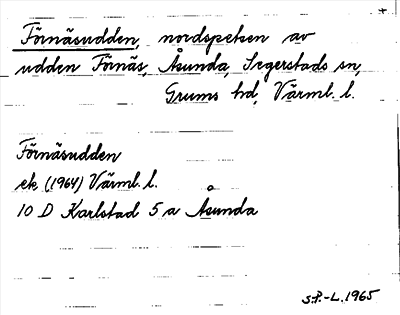 Förnäsudden, nordspetsen av
udden Förnäs, Åsunda, Segerstads sn,
Grums hd, Värml. l.
Förnäsudden
ek (1964) Värml. l.
10 D Karlstad 5 a Åsunda
S.P.-L. 1965